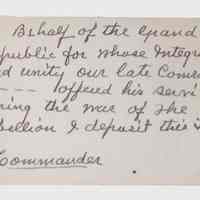 Behalf of the Grand
public for whose Integri
d unity our late Comra
--- offered his servi
ring the war of the
bellion I deposit this
Commander